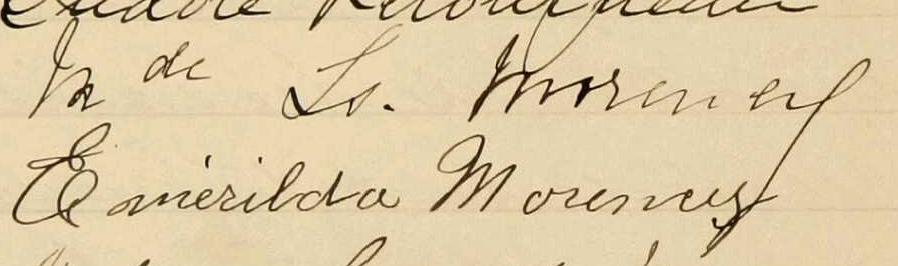 Mde Ls. Morency
Emérilda Morency